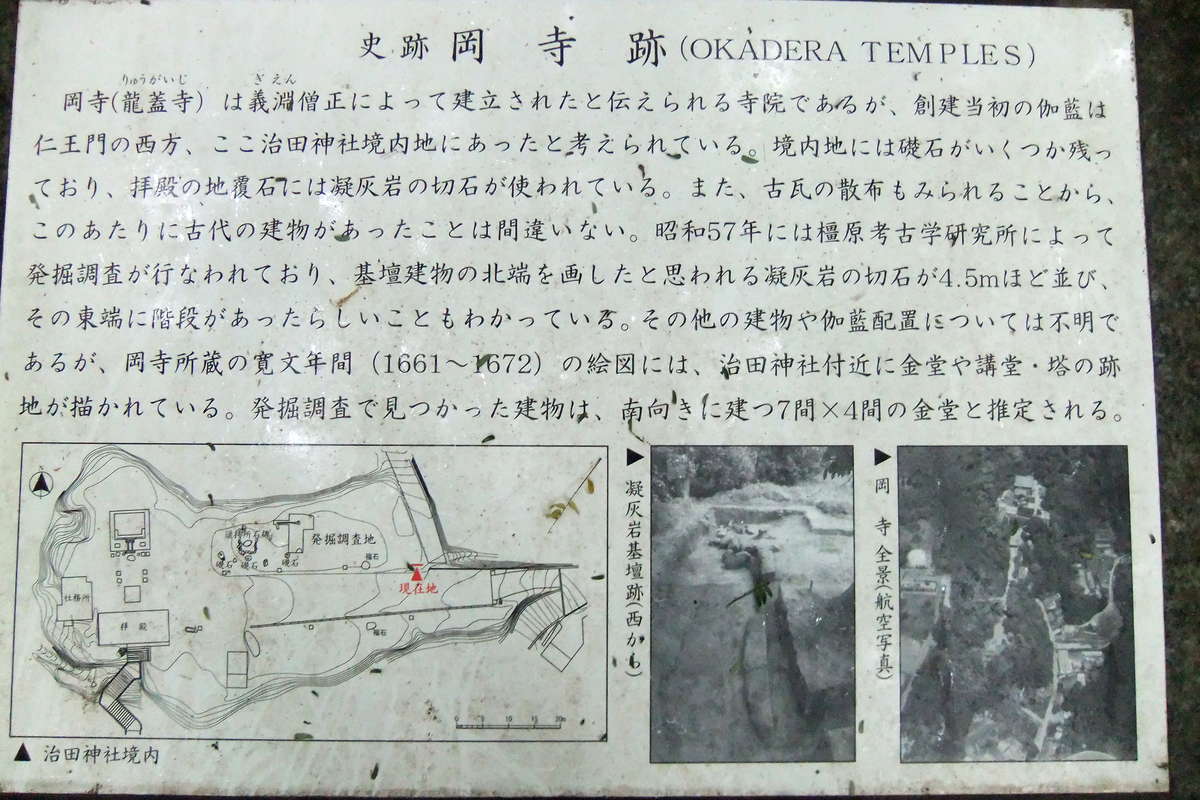 史跡 岡寺跡(OKADERA TEMPLES)
りゅうがいじ ぎえん
岡寺(龍蓋寺)は義淵僧正によって建立されたと伝えられる寺院であるが、創建当初の伽藍は
仁王門の西方、ここ治田神社境内地にあったと考えられている。境内地には礎石がいくつか残っ
ており、拝殿の地覆石には凝灰岩の切石が使われている。また、古瓦の散布もみられることから、
このあたりに古代の建物があったことは間違いない。昭和57年には橿原考古学研究所によって
発掘調査が行なわれており、基壇建物の北端を画したと思われる凝灰岩の切石が4.5mほど並び、
その東端に階段があったらしいこともわかっている。その他の建物や伽藍配置については不明で
あるが、岡寺所蔵の寛文年間(1661〜1672)の絵図には、治田神社付近に金堂や講堂・塔の跡
地が描かれている。発掘調査で見つかった建物は、南向きに建つ7間×4間の金堂と推定される。
発掘調査地
礎石
礎石
礎石
現在地
社務所
拝殿
0 5 10 15 20m
▲ 治田神社境内
▶ 凝灰岩基壇跡(西から)
▶ 岡寺全景(航空写真)